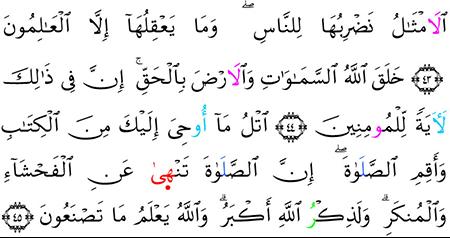 اَ۬لَامْثَٰلُ نَضْرِبُهَا لِلنَّاسِۖ وَمَا يَعْقِلُهَا إِلَّا اَ۬لْعَٰلِمُونَ
۝٤٣ خَلَقَ اَ۬للَّهُ اُ۬لسَّمَٰوَٰتِ وَالَارْضَ بِالْحَقِّۚ إِنَّ فِي ذَٰلِكَ
لَأٓيَةٗ لِّلْمُومِنِينَ ۝٤٤ اَ۟تْلُ مَآ أُوحِيَ إِلَيْكَ مِنَ اَ۬لْكِتَٰبِ
وَأَقِمِ اِ۬لصَّلَوٰةَۖ إِنَّ اَ۬لصَّلَوٰةَ تَنْهۭىٰ عَنِ اِ۬لْفَحْشَآءِ
وَالْمُنكَرِۗ وَلَذِكْرُ اُ۬للَّهِ أَكْبَرُۗ وَاللَّهُ يَعْلَمُ مَا تَصْنَعُونَ ۝٤٥